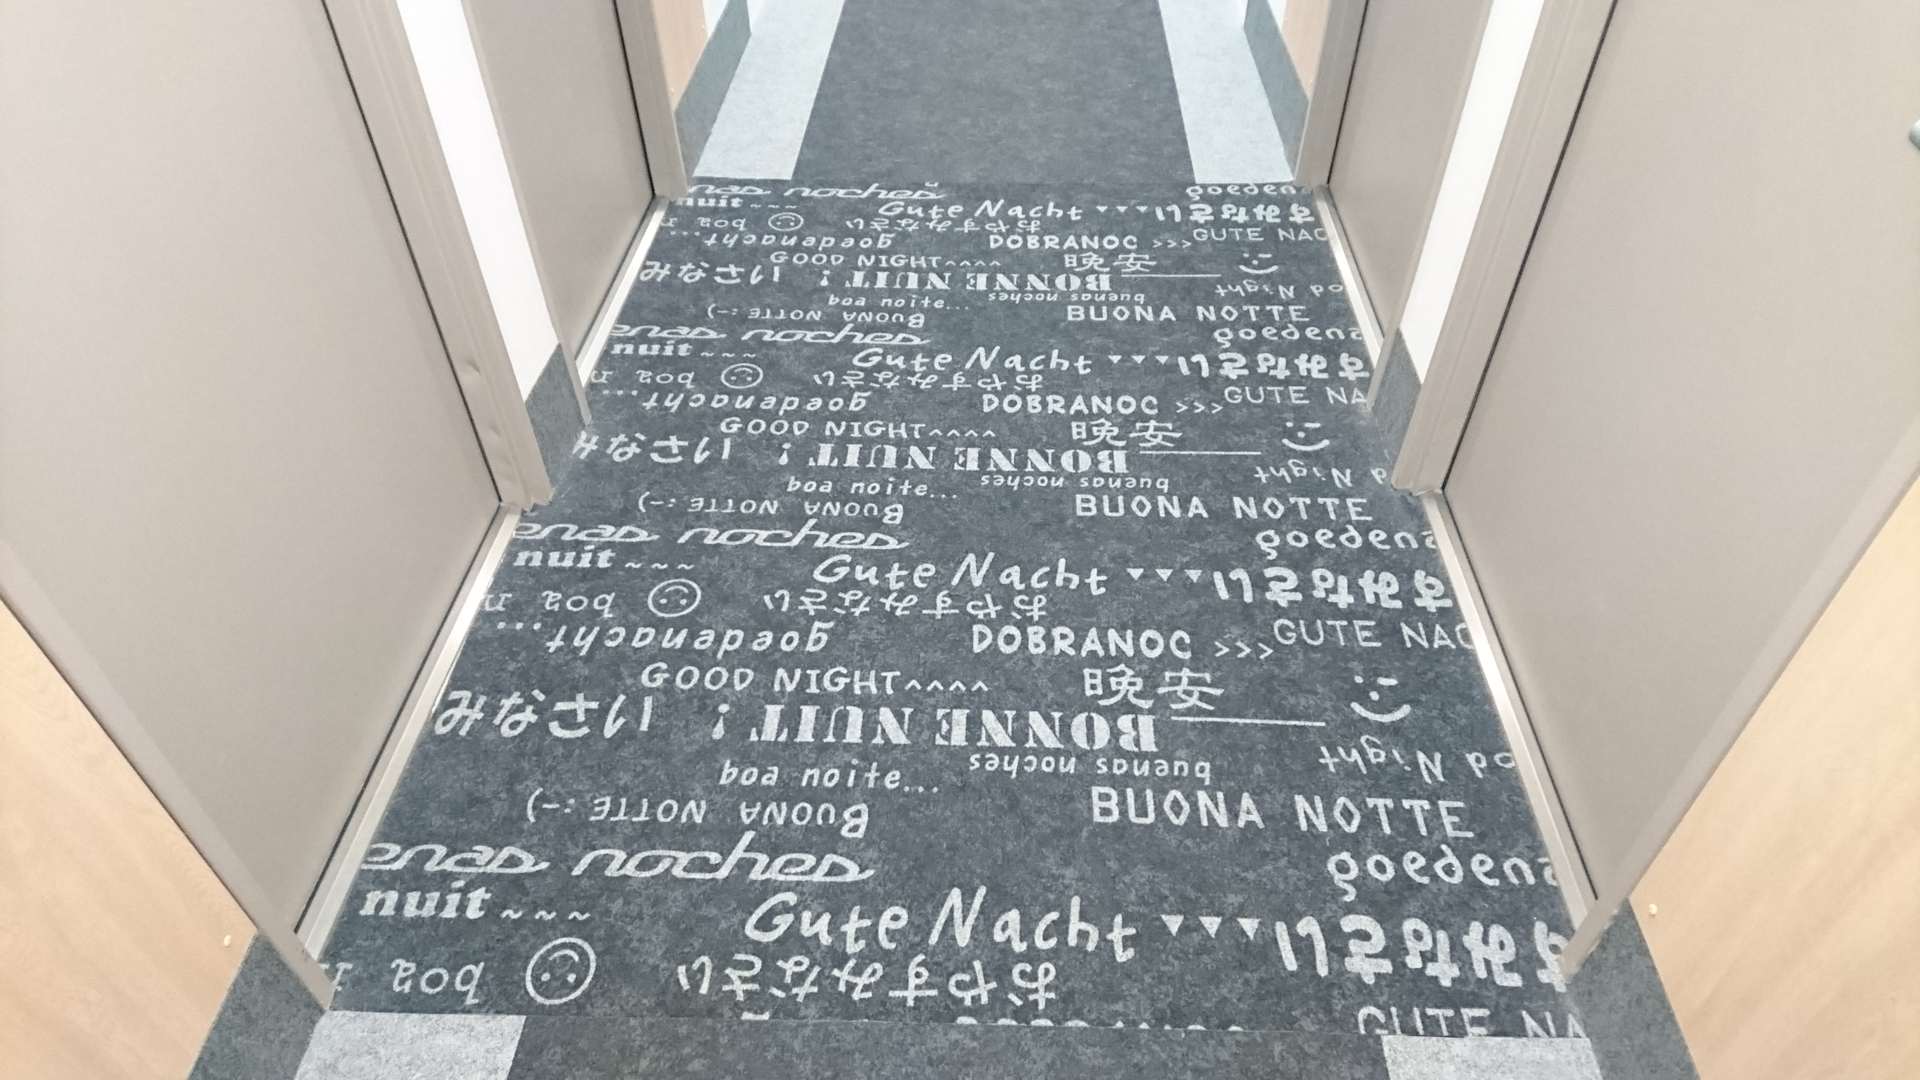 nas noches goeden
nuit ~~~ Gute Nacht ▾▾▾ すみなさい
boa おやすみなさい
goedenacht... DOBRANOC >>> GUTE NAC
GOOD NIGHT^^^^ 晩安
みなさい BONNE NUIT!
boa noite... buenas noches od Night
BUONA NOTTE :-) BUONA NOTTE
enas noches goedena
nuit ~~~ Gute Nacht ▾▾▾ すみなさい
boa おやすみなさい
goedenacht... DOBRANOC >>> GUTE NA
GOOD NIGHT^^^^ 晩安
みなさい BONNE NUIT!
boa noite... buenas noches d Night
BUONA NOTTE :-) BUONA NOTTE
enas noches goedena
nuit ~~~ Gute Nacht ▾▾▾ すみなさい
boa n おやすみなさい
goedenacht... DOBRANOC >>> GUTE NAC
GOOD NIGHT^^^^ 晩安
みなさい BONNE NUIT!
boa noite... buenas noches od Night
BUONA NOTTE :-) BUONA NOTTE
enas noches goedena
nuit ~~~ Gute Nacht ▾▾▾ すみなさい
boa n おやすみなさい
GUTE NA